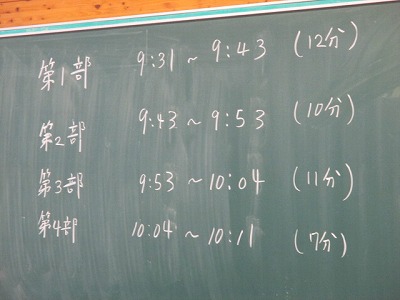 第1部 9:31 ~ 9:43 (12分)
第2部 9:43 ~ 9:53 (10分)
第3部 9:53 ~ 10:04 (11分)
第4部 10:04 ~ 10:11 (7分)